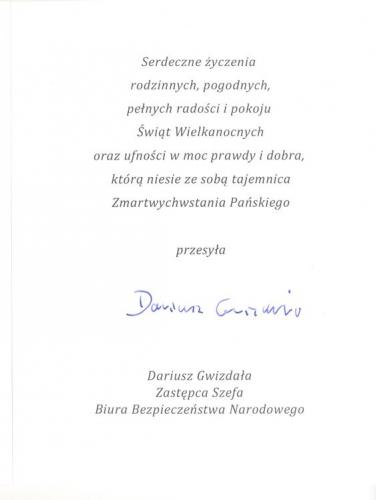 Serdeczne życzenia
rodzinnych, pogodnych,
pełnych radości i pokoju
Świąt Wielkanocnych
oraz ufności w moc prawdy i dobra,
którą niesie ze sobą tajemnica
Zmartwychwstania Pańskiego
przesyła
Dariusz Gwizdała
Dariusz Gwizdała
Zastępca Szefa
Biura Bezpieczeństwa Narodowego